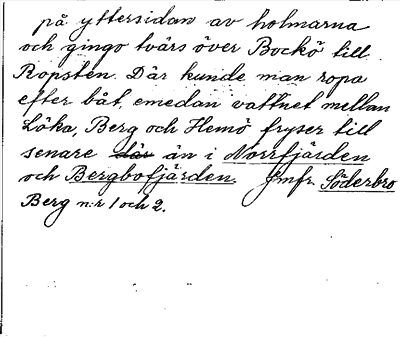 på yttersidan av holmarna
och gingo tvärs över Bockö till
Ropsten. Där kunde man ropa
efter båt, emedan vattnet mellan
Löka, Berg och Hemö fryser till
senare där än i Norrfjärden
och Bergbofjärden. Jmfr. Söderbro
Berg n:r 1 och 2.